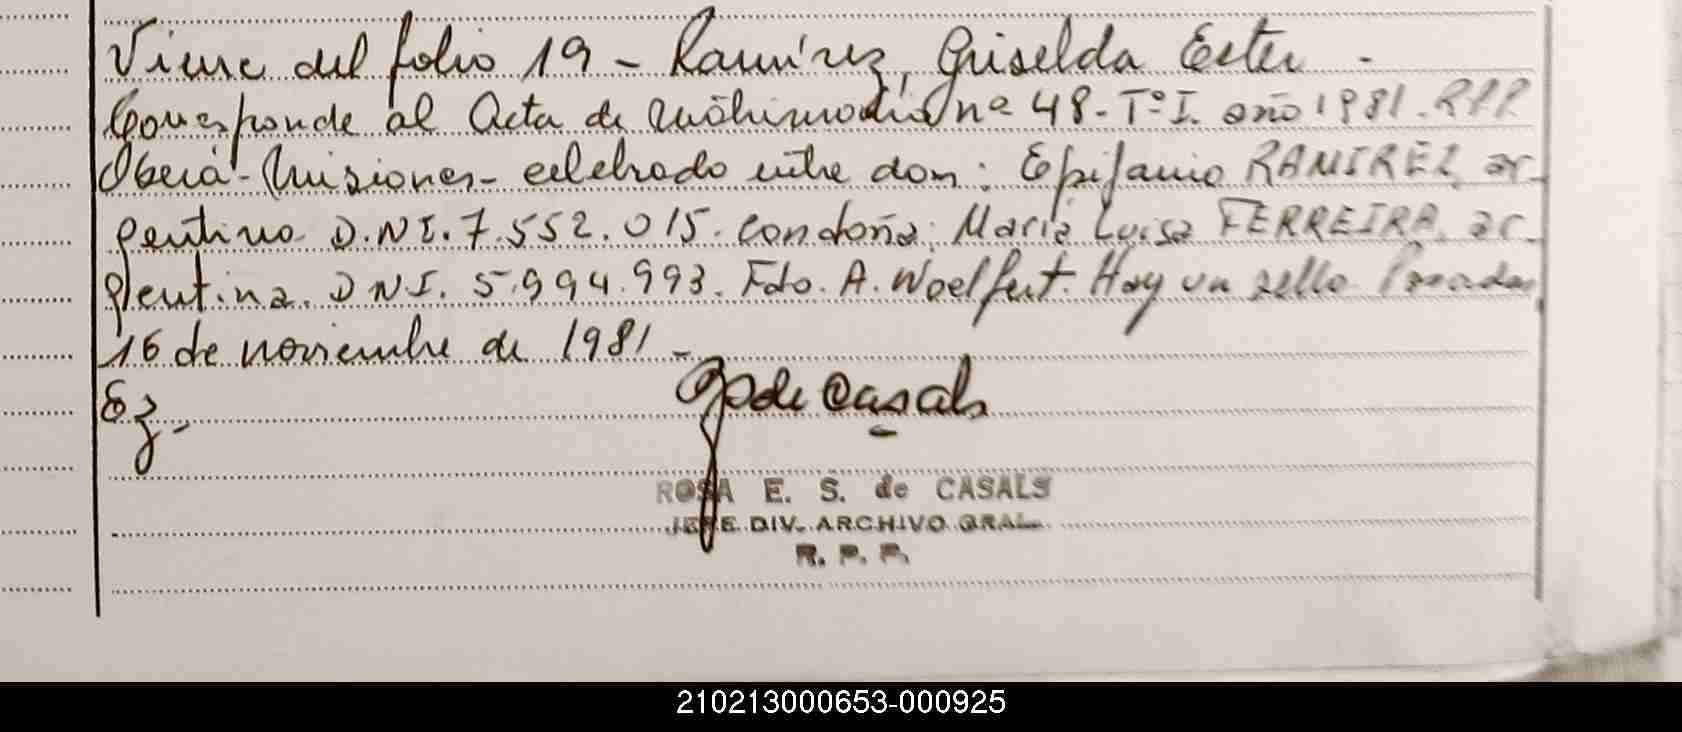 Viene del folio 19 - Ramírez, Griselda Ester -
Corresponde al Acta de Matrimonio nº 48 - Tº I. año 1981. RPP
Oberá - Misiones - celebrado entre don: Epifanio RAMIREZ, ar-
gentino D.N.I. 7.552.015. con doña: María Luisa FERREIRA, ar-
gentina. D N I. 5.994.993. Fdo. A. Woelfert. Hay un sello. Posadas,
16 de noviembre de 1981 -
Ez -
de Casals
ROSA E. S. de CASALS
JEFE DIV. ARCHIVO GRAL.
R. P. P.
210213000653-000925